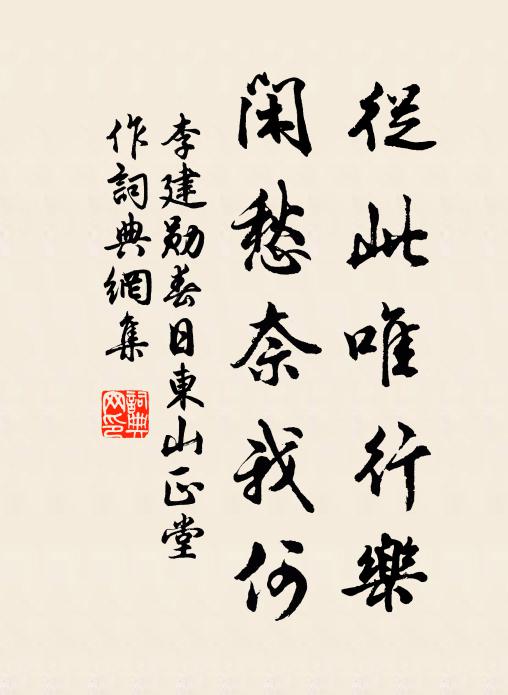 從此唯行樂
閑愁奈我何
李建勛春日東山正堂
作詞典網集
詞典
网印